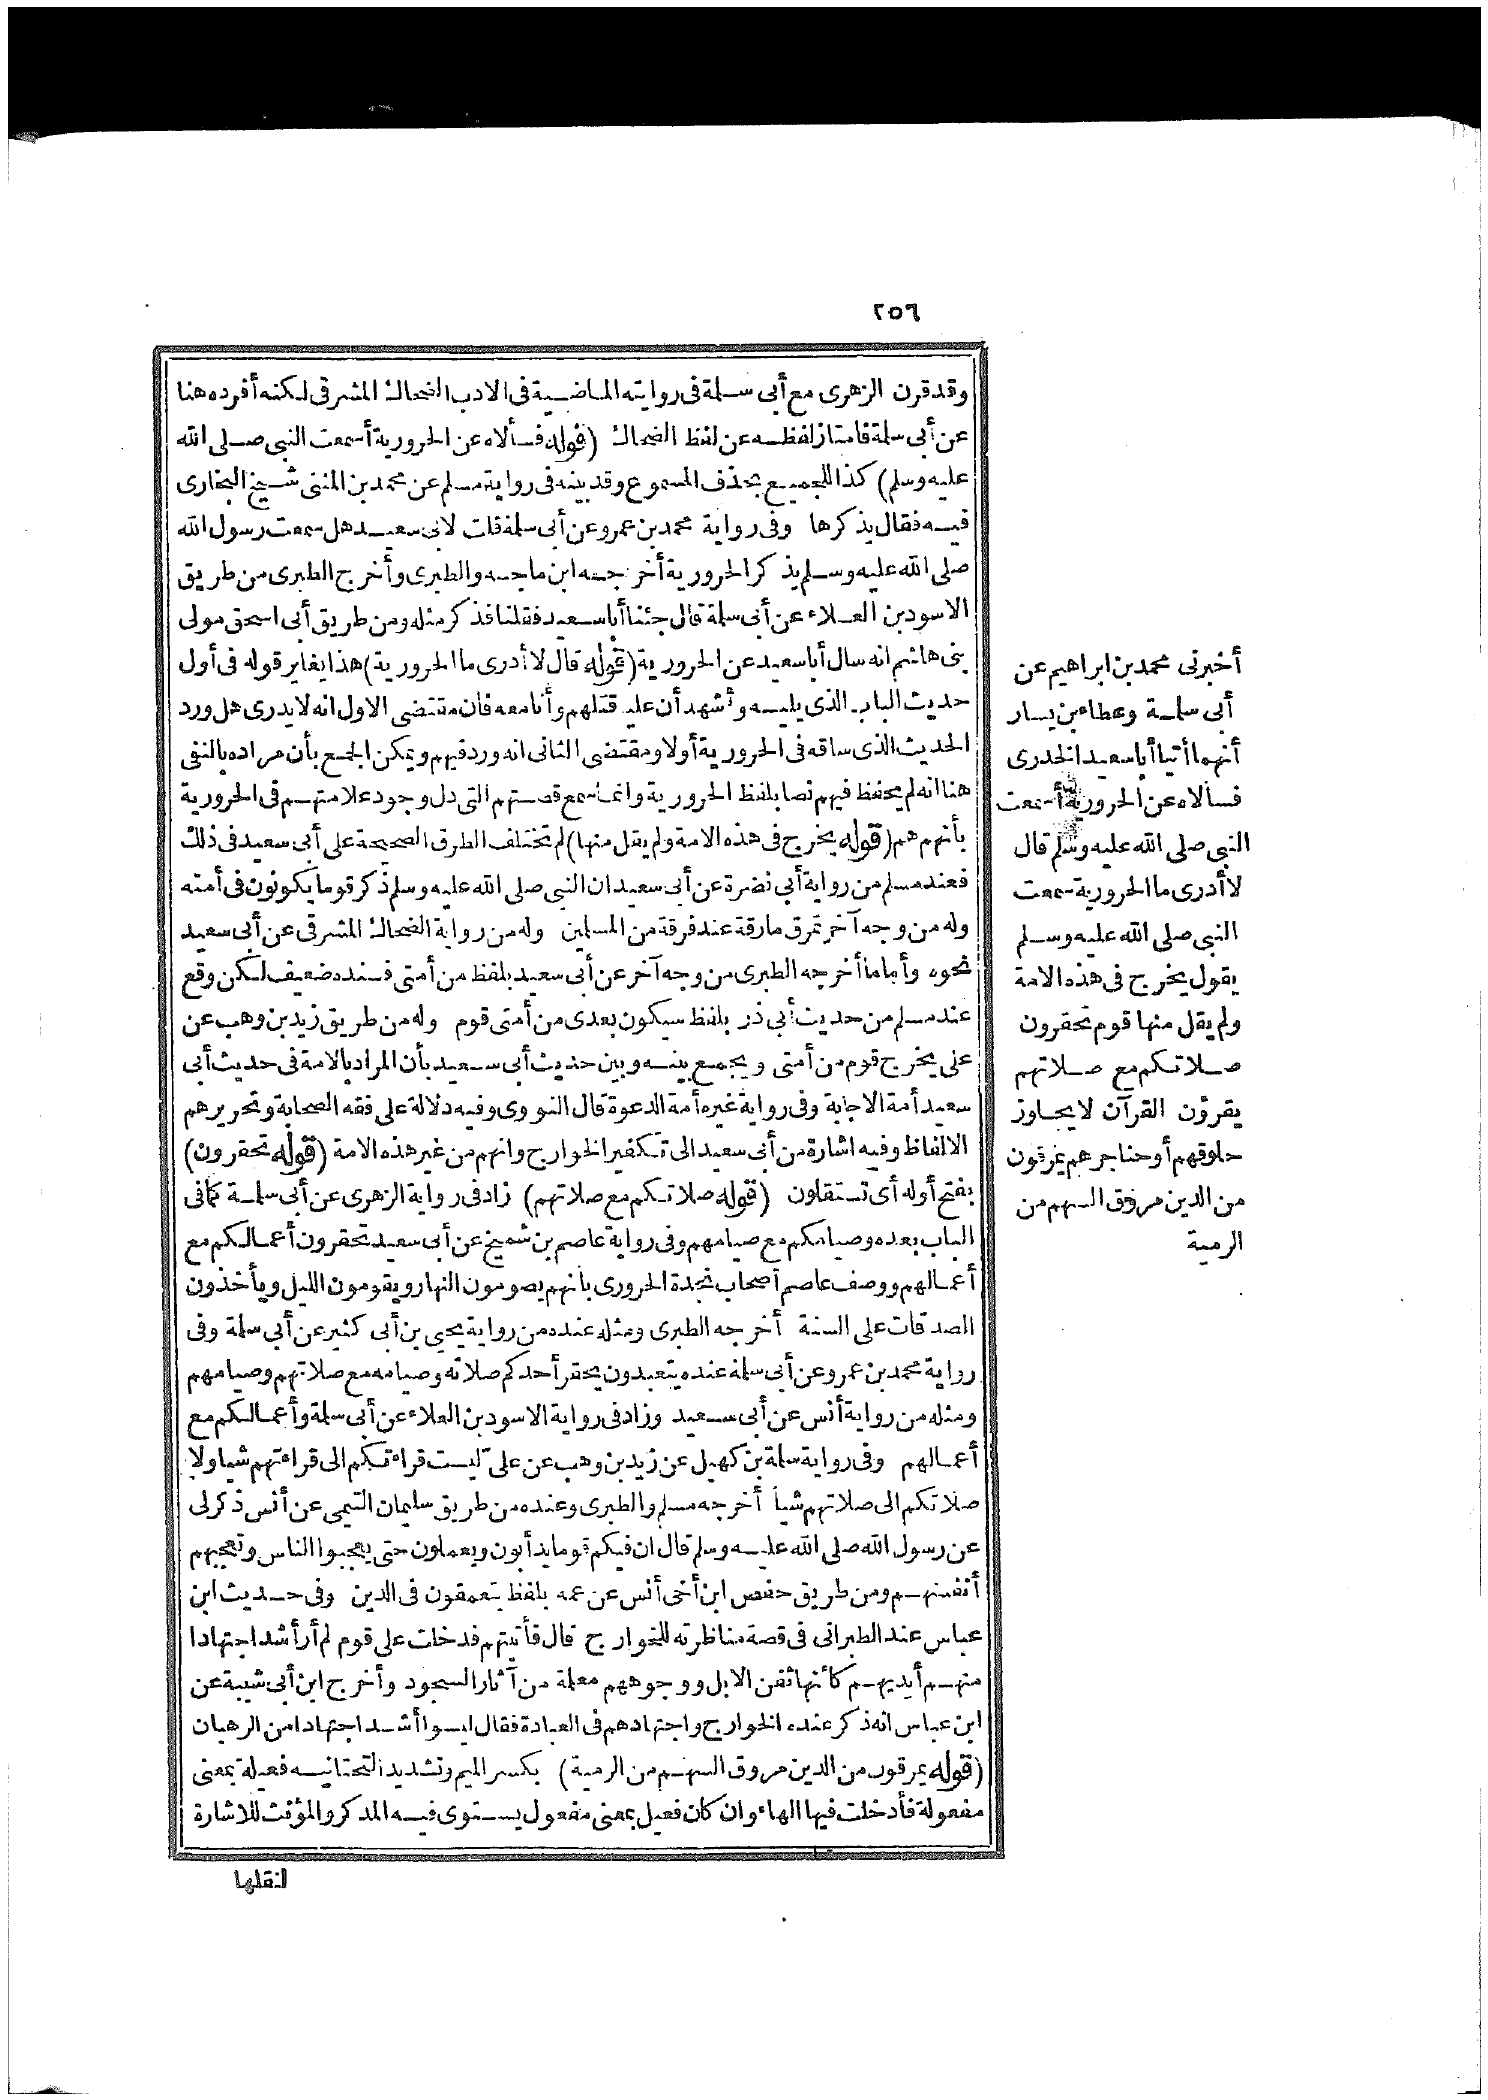 ٢٥٦
وقد قرن الزهرى مع أبى سلمة فى روايته الماضية فى الادب الضحاك المشرقى لكنه أفرده هنا
عن أبى سلمة فامتاز لفظه عن لفظ الضحاك (قوله فسألاه عن الحرورية أسمعت النبى صلى الله
عليه وسلم) كذا للجميع بحذف المسموع وقد بينه فى رواية مسلم عن محمد بن المثنى شيخ البخارى
فيه فقال يذكرها وفى رواية محمد بن عمرو عن أبى سلمة قلت لابى سعيد هل سمعت رسول الله
صلى الله عليه وسلم يذكر الحرورية أخرجه ابن ماجه والطبرى وأخرج الطبرى من طريق
الاسود بن العلاء عن أبى سلمة قال جئنا أبا سعيد فقلنا فذكر مثله ومن طريق أبى اسحق مولى
بنى هاشم انه سال أبا سعيد عن الحرورية (قوله قال لا أدرى ما الحرورية) هذا يغاير قوله فى أول
حديث الباب الذى يليه وأشهد أن عليا قتلهم وأنا معه فان مقتضى الاول انه لا يدرى هل ورد
الحديث الذى ساقه فى الحرورية أولا ومقتضى الثانى انه ورد فيهم ويمكن الجمع بأن مراده بالنفى
هنا انه لم يحفظ فيهم نصا بلفظ الحرورية وانما سمع قصتهم التى دل وجود علامتهم فى الحرورية
بأنهم هم (قوله يخرج فى هذه الامة ولم يقل منها) لم تختلف الطرق الصحيحة على أبى سعيد فى ذلك
فعند مسلم من رواية أبى نضرة عن أبى سعيد ان النبى صلى الله عليه وسلم ذكر قوما يكونون فى أمته
وله من وجه آخر تمرق مارقة عند فرقة من المسلمين وله من رواية الضحاك المشرقى عن أبى سعيد
نحوه وأما ما أخرجه الطبرى من وجه آخر عن أبى سعيد بلفظ من أمتى فسنده ضعيف لكن وقع
عند مسلم من حديث أبى ذر بلفظ سيكون بعدى من أمتى قوم وله من طريق زيد بن وهب عن
على يخرج قوم من أمتى ويجمع بينه وبين حديث أبى سعيد بأن المراد بالامة فى حديث أبى
سعيد أمة الاجابة وفى رواية غيره أمة الدعوة قال النووى وفيه دلالة على فقه الصحابة وتحريرهم
الالفاظ وفيه اشارة من أبى سعيد الى تكفير الخوارج وانهم من غير هذه الامة (قوله تحقرون)
بفتح أوله أى تستقلون (قوله صلاتكم مع صلاتهم) زاد فى رواية الزهرى عن أبى سلمة كما فى
الباب بعده وصيامكم مع صيامهم وفى رواية عاصم بن شميخ عن أبى سعيد تحقرون أعمالكم مع
أعمالهم ووصف عاصم أصحاب نجدة الحرورى بانهم يصومون النهار ويقومون الليل ويأخذون
الصدقات على السنة أخرجه الطبرى ومثله عنده من رواية يحيى بن أبى كثير عن أبى سلمة وفى
رواية محمد بن عمرو عن أبى سلمة عنده يتعبدون يحقر أحدكم صلاته وصيامه مع صلاتهم وصيامهم
ومثله من رواية أنس عن أبى سعيد وزاد فى رواية الاسود بن العلاء عن أبى سلمة وأعمالكم مع
أعمالهم وفى رواية سلمة بن كهيل عن زيد بن وهب عن علىّ ليست قراءتكم الى قراءتهم شيأ ولا
صلاتكم الى صلاتهم شيأ أخرجه مسلم والطبرى وعنده من طريق سليمان التيمى عن أنس ذكر لى
عن رسول الله صلى الله عليه وسلم قال ان فيكم قوما يدأبون ويعملون حتى يعجبوا الناس وتعجبهم
أنفسهم ومن طريق حفص ابن أخى أنس عن عمه بلفظ يتعمقون فى الدين وفى حديث ابن
عباس عند الطبرانى فى قصة مناظرته للخوارج قال فأتيتهم فدخلت على قوم لم أر أشد اجتهادا
منهم أيديهم كأنها ثفن الابل ووجوههم معلمة من آثار السجود وأخرج ابن أبى شيبة عن
ابن عباس انه ذكر عنده الخوارج واجتهادهم فى العبادة فقال ليسوا أشد اجتهادا من الرهبان
(قوله يمرقون من الدين مروق السهم من الرمية) بكسر الميم وتشديد التحتانيه فعيلة بمعنى
مفعولة فأدخلت فيها الهاء وان كان فعيل بمعنى مفعول يستوى فيه المذكر والمؤنث للاشارة
لنقلها
أخبرنى محمد بن ابراهيم عن
أبى سلمة وعطاء بن يسار
أنهما أتيا أبا سعيد الخدرى
فسألاه عن الحرورية أسمعت
النبى صلى الله عليه وسلم قال
لا أدرى ما الحرورية سمعت
النبى صلى الله عليه وسلم
يقول يخرج فى هذه الامة
ولم يقل منها قوم تحقرون
صلاتكم مع صلاتهم
يقرؤن القرآن لا يجاوز
حلوقهم أو حناجرهم يمرقون
من الدين مروق السهم من
الرمية